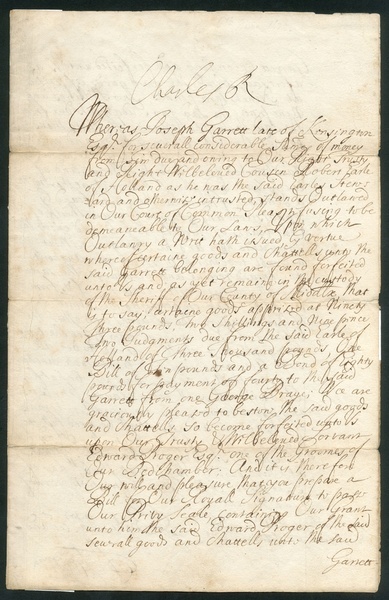 Charles R
Whereas Joseph Garrett late of Kensington
Esqr. for severall considerable Sumes of money
from him due and oweing to Our Right Trusty
and Right Welbeloved Cousin Robert Earle
of Holland as he was the said Earles Stew-
ard and otherwise intrusted, stands Outlawed
in Our Court of Common Pleas refusing to be
demeaneable to Our Laws, Upon which
Outlawry a Writ hath issued by vertue
whereof certaine goods and Chattells unto the
said Garrett belonging are found forfeited
unto Us and as yet remaine in the custody
of the Sheriff of Our County of Middx That
is to say, certaine goods apprized at Ninety
Three pounds two Shillings and Nine pence
Two Judgments due from the said Earle of
Holland of Three thousand pounds, One
Bill of Tenn pounds and a Bond of Eighty
pounds for payment of fourty to the said
Garrett from one George Draye; Wee are
graciously pleased to bestow the said goods
and Chattells so become forfeited unto Us
upon Our Trusty & Welbeloved Servant
Edward Proger Esqr. one of the Groomes of
Our Bed Chamber. And it is therefore
Our will and pleasure that you prepare a
Bill for Our Royall Signature to passe
Our Privy Seale containing Our Grant
unto him the said Edward Proger of the said
severall goods and Chattells unto the said
Garrett